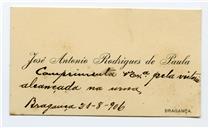 José Antonio Rodrigues de Paula
Comprimenta V. Ex.ª pela victoria
alcançada na urna
Bragança 21-8-906
BRAGANÇA